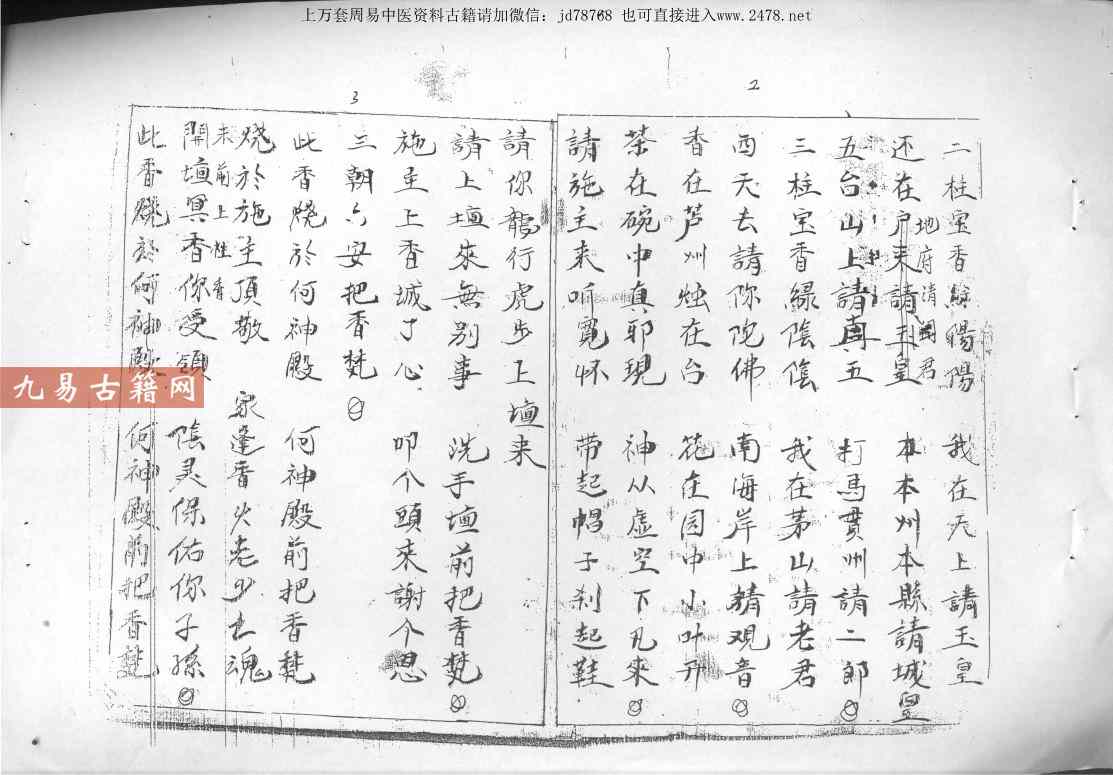 上万套周易中医资料古籍请加微信：jd78768 也可直接进入www.2478.net
2
二柱宝香 陽陽 我在天上請玉皇
地府請 君
还在户来請玉皇 本本州本縣請城皇
五台山上請真五 打馬贯州請二郎
三柱宝香緑陰陰 我在茅山請老君
西天去請你陀佛 南海岸上請观音
香在芦州烛在台 花在园中小叶开
茶在碗中真邪現 神从虚空下凡來
請施主来听寬怀 带起帽子刹起鞋
3
請你龍行虎步上壇来
請上壇來無别事 洗手壇前把香焚
施主上香城了心 叩个頭来謝个恩
三朝六安把香焚
此香燒於何神殿 何神殿前把香焚
燒於施主頂敬 家逢香火老少 魂
未前上柱香
開壇冥香你受領 陰灵保佑你子孫
此香燒於何神殿 何神殿前把香焚
九易古籍网